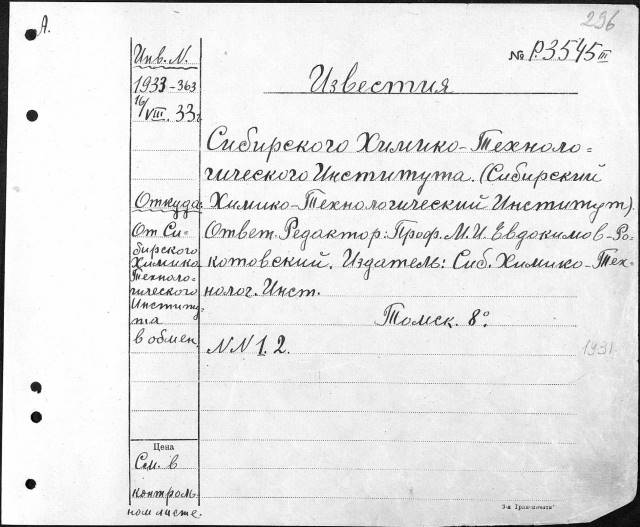 A.
296
№ Р.3545 III
Известия
Инв. N.
1933-363
16/VIII. 33 г.
Сибирского Химико-Техноло=
гического Института. (Сибирский
Химико-Технологический Институт).
Ответ. Редактор: Проф. М.И. Евдокимов-Ро-
котовский. Издатель: Сиб. Химико-Тех-
нолог. Инст.
Томск. 8°.
NN 1. 2.
1931
Откуда:
От Си-
бирского
Химико
Техноло=
гического
Институ-
та
в обмен.
Цена
См. в
контроль-
ном листе.